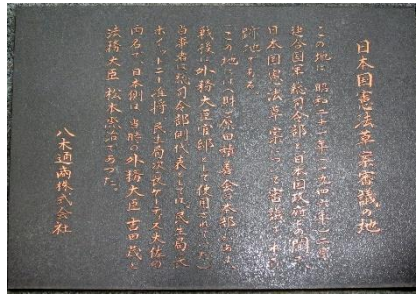 日本国憲法草案審議の地
この地は、昭和二十一年(一九四六年)二月
連合国軍総司令部と日本国政府の間で
日本国憲法草案について審議された
跡地である。
(この地は(財)原田積善会の本部であり
戦後は外務大臣官邸として使用されていた)
当事者は総司令部側代表としては、民生局長
ホイットニー准将、民生局次長ケーディス大佐の
両名で、日本側は、当時の外務大臣吉田茂と
法務大臣松本烝治であった。
八木通商株式会社